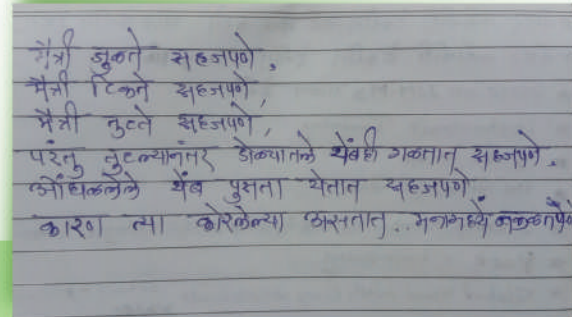 मैत्री जुळते सहजपणे,
मैत्री टिकते सहजपणे,
मैत्री तुटते सहजपणे,
परंतु तुटल्यानंतर डोळ्यातले थेंबही गळतात सहजपणे.
ओघळलेले थेंब पुसता येतात सहजपणे
कारण त्या कोरलेल्या असतात.. मनामध्ये नकळतपणे